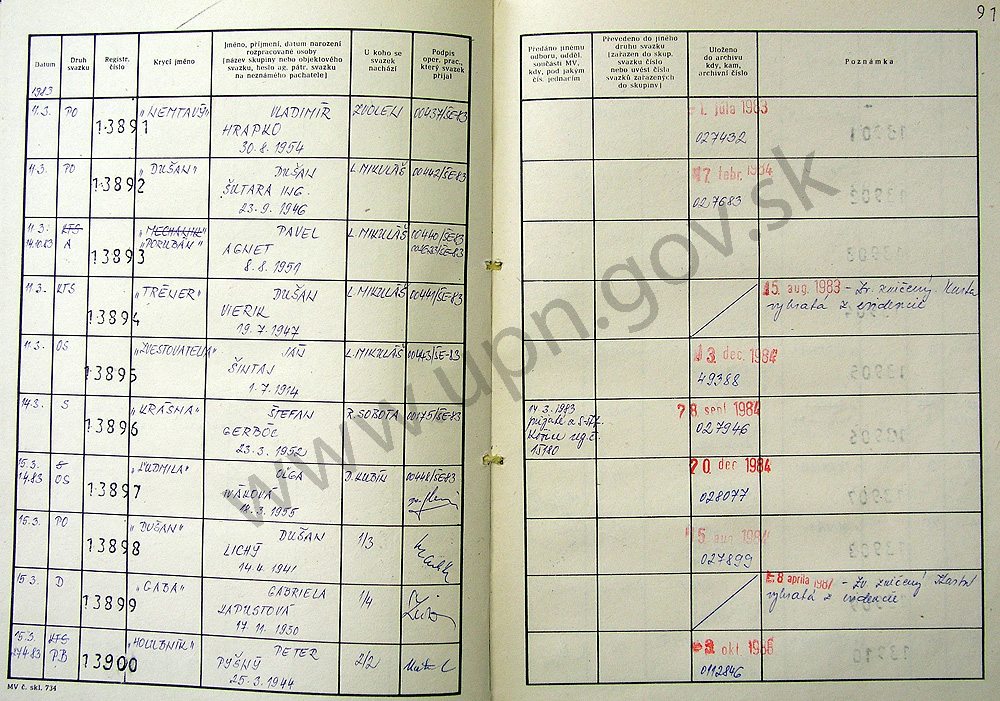 91
Datum
Druh svazku
Registr. číslo
Krycí jméno
Jméno, příjmení, datum narození
rozpracované osoby
(název skupiny nebo objektového
svazku, heslo ag. pátr. svazku
na neznámého pachatele)
U koho se
svazek
nachází
Podpis
oper. prac.,
který svazek
přijal
Předáno jinému
odboru, odděl.
součásti MV,
kdy, pod jakým
čís. jednacím
Převedeno do jiného
druhu svazku
(zařazen do skup.
svazku číslo
nebo uvést čísla
svazků zařazených
do skupiny)
Uloženo
do archivu
kdy, kam,
archivní číslo
Poznámka
1983
11.3. PO 13891 VLADIMÍR ZVOLEN 00437/ŠE-83
HRAPKO
30.8.1954
1. júla 1983
027432
11.3. PO 13892 „DUŠAN" DUŠAN L. MIKULÁŠ 00442/ŠE-83
ŠUTARA ING.
23.9.1946
17 febr. 1984
027683
11.3. KTS 13893 „MECHANIK" PAVEL L. MIKULÁŠ 00440/ŠE-83
14.10.83 A AGNET
8.8.1951
11.3. KTS 13894 „TRÉNER" DUŠAN L. MIKULÁŠ 00441/ŠE-83
VIERIK
19.7.1947
15. aug. 1983 - Zv. zničený Karta
vybratá z evidencie
11.3. OS 13895 JÁN L. MIKULÁŠ 00443/ŠE-83
ŠINTAJ
1.7.1914
13. dec. 1984
49388
14.3. S 13896 „KRÁSNA" ŠTEFAN R. SOBOTA 00175/ŠE-83
GERBÓC
23.3.1952
14.3.1983
Košice reg. č.
15180
28 sept 1984
027946
15.3. 13897 „ĽUDMILA" OĽGA D. KUBÍN 00448/ŠE-83
OS
14.3.1955
20 dec 1984
028077
15.3. PO 13898 „DUŠAN" DUŠAN 1/3
LICHÝ
14.4.1941
15 aug. 1984
027899
15.3. D 13899 „GABA" GABRIELA 1/4
LAPUSTOVÁ
17.11.1950
28 apríla 1987 - Zv. zničený Karta
vybratá z evidencie
15.3. KTS 13900 PETER 2/2
27.4.83 PB PYŠNÝ
25.3.1944
okt 1986
0112846
MV č. skl. 734
www.upn.gov.sk